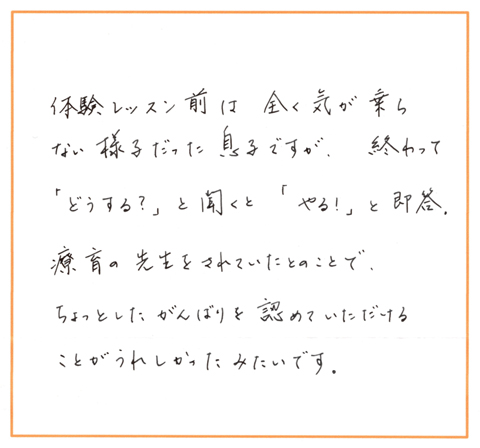 体験レッスン前は 全く気が乗ら
ない様子だった息子ですが、 終わって
「どうする?」と聞くと「やる!」と即答.
療育の先生をされていたとのことで、
ちょっとしたがんばりを認めていただける
ことがうれしかったみたいです.